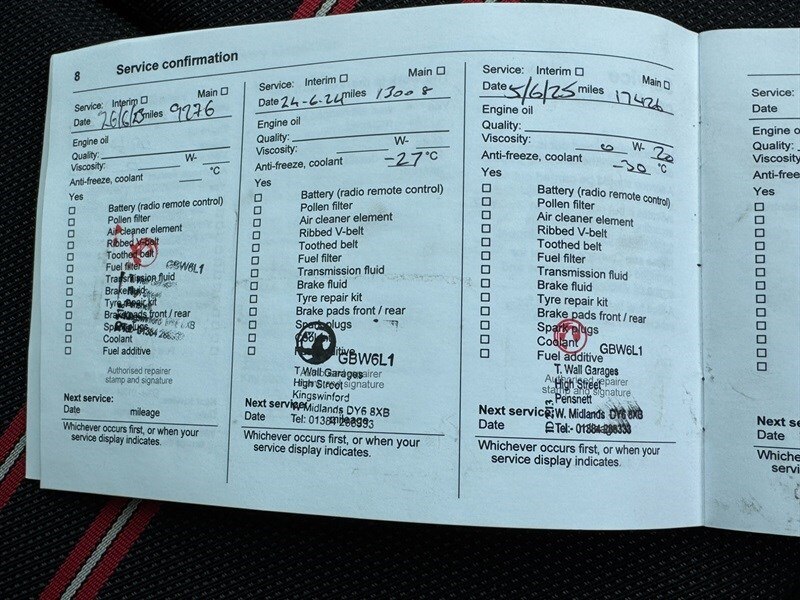 8 Service confirmation
Service: Interim Main
Date 26/6/23 miles 9276
Engine oil
Quality:
Viscosity: W-
Anti-freeze, coolant °C
Yes
Battery (radio remote control)
Pollen filter
Air cleaner element
Ribbed V-belt
Toothed belt
Fuel filter
GBW6L1
Transmission fluid
Brake fluid
Tyre repair kit
Brake pads front / rear
Spark plugs
Coolant
Fuel additive
Authorised repairer
stamp and signature
Next service:
Date mileage
Whichever occurs first, or when your
service display indicates.
Service: Interim Main
Date 24-6-24 miles 13008
Engine oil
Quality:
Viscosity: W-
Anti-freeze, coolant -27 °C
Yes
Battery (radio remote control)
Pollen filter
Air cleaner element
Ribbed V-belt
Toothed belt
Fuel filter
Transmission fluid
Brake fluid
Tyre repair kit
Brake pads front / rear
Spark plugs
GBW6L1
T. Wall Garages
High Street
Kingswinford
W. Midlands DY6 8XB
Tel: 01384
stamp and signature
Next service:
Date mileage
Whichever occurs first, or when your
service display indicates.
Service: Interim Main
Date 5/6/25 miles 17426
Engine oil
Quality:
Viscosity: 0 W- 20
Anti-freeze, coolant -30 °C
Yes
Battery (radio remote control)
Pollen filter
Air cleaner element
Ribbed V-belt
Toothed belt
Fuel filter
Transmission fluid
Brake fluid
Tyre repair kit
Brake pads front / rear
Spark plugs
Coolant
Fuel additive
GBW6L1
T. Wall Garages
High Street
Pensnett
W. Midlands
Tel:
Authorised repairer
stamp and signature
Next service:
Date
Whichever occurs first, or when your
service display indicates.
Service:
Date
Engine o
Quality:
Viscosity
Anti-free
Yes
Next s
Date
Whiche
serv